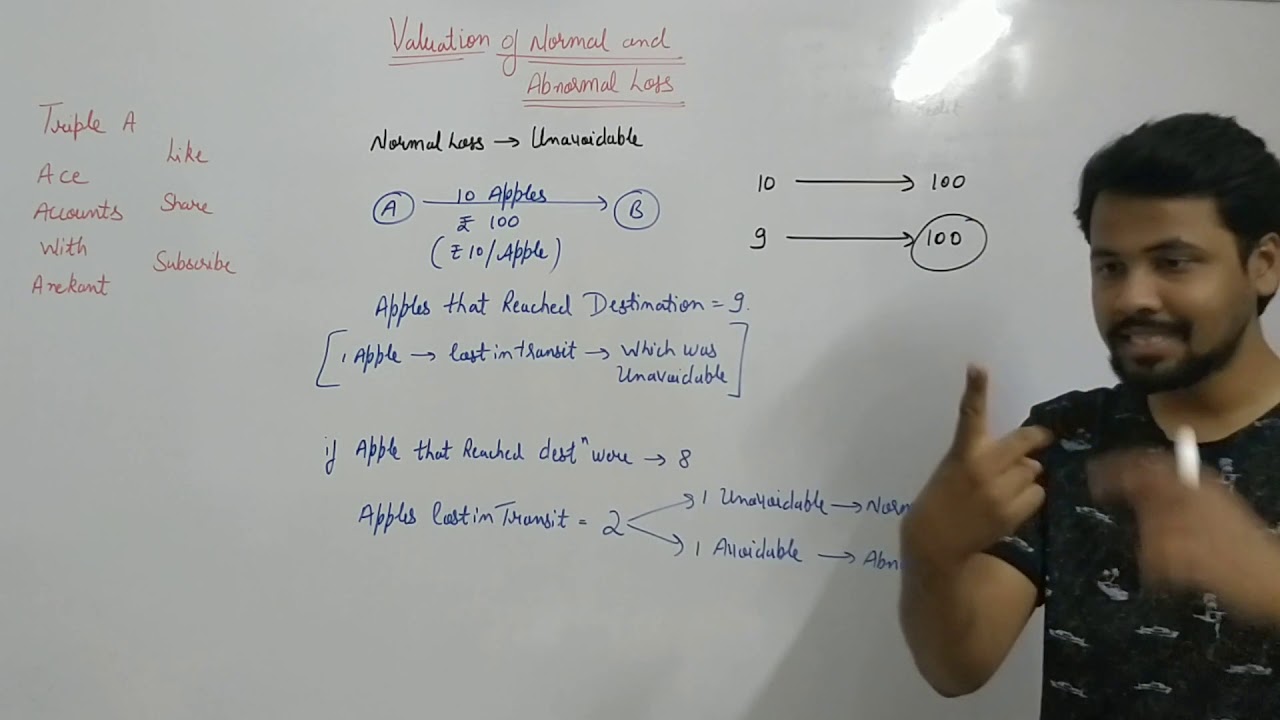 Valuation of Normal and
Abnormal Loss
Triple A
Like
Ace
Accounts
Share
With
Subscribe
Anekant
Normal Loss → Unavoidable
A 10 Apples → B
₹ 100
(₹10/Apple)
10 → 100
9 → 100
Apples that Reached Destination = 9.
[1 Apple → lost in transit → which was
Unavoidable]
if Apple that Reached destⁿ were → 8
Apples lost in Transit = 2
1 Unavoidable → Norm
1 Avoidable → Abn